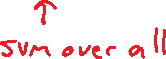 ↑
sum over all